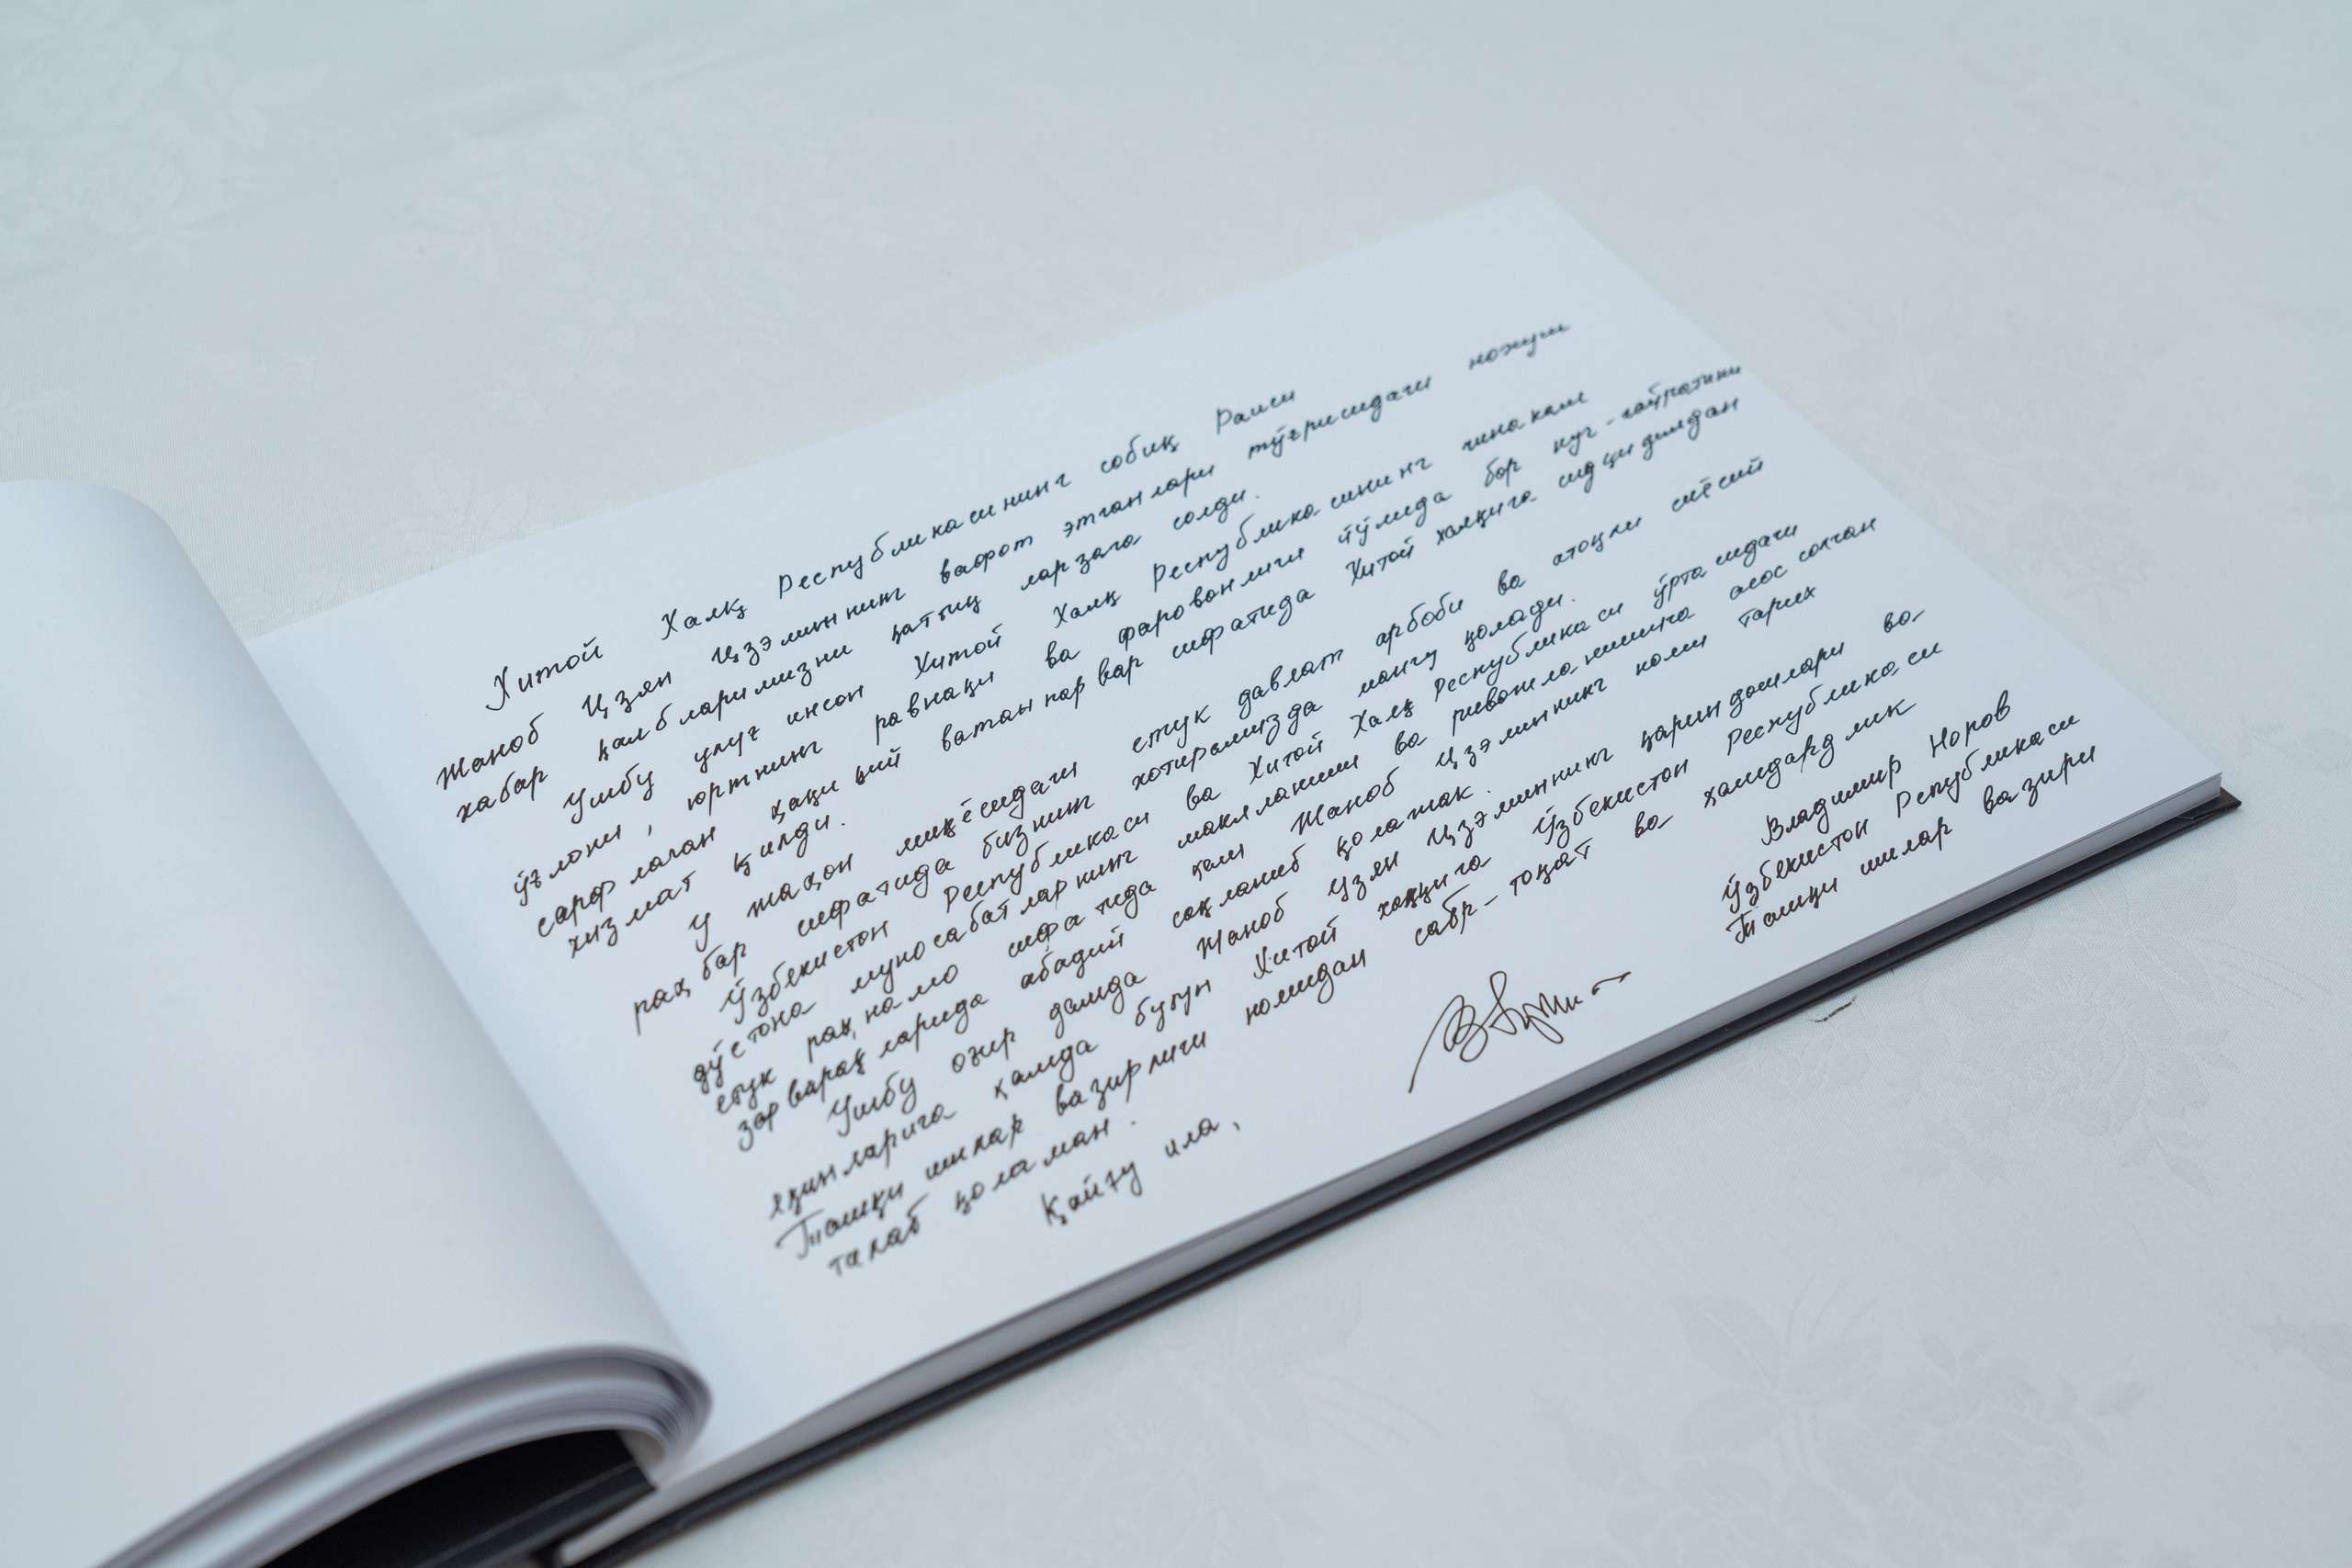 Хитой Халқ Республикасининг собиқ Раиси
Жаноб Цзян Цзэминнинг вафот этганлари тўғрисидаги нохуш
хабар қалбларимизни қаттиқ ларзага солди.
Ушбу улуғ инсон Хитой Халқ Республикасининг чинакам
ўғлони, юртнинг равнақи ва фаровонлиги йўлида бор куч-ғайратини
сарфлаган ҳақиқий ватанпарвар сифатида Хитой халқига сидқидилдан
хизмат қилди.
У жаҳон миқёсидаги етук давлат арбоби ва атоқли сиёсий
раҳбар сифатида бизнинг хотирамизда мангу қолади.
Ўзбекистон Республикаси ва Хитой Халқ Республикаси ўртасидаги
дўстона муносабатларнинг шаклланиши ва ривожланишига асос солган
етук раҳнамо сифатида ҳам Жаноб Цзэминнинг номи тарих
зарварақларида абадий сақланиб қолажак.
Ушбу оғир дамда Жаноб Цзян Цзэминнинг қариндошлари ва
яқинларига ҳамда бутун Хитой халқига Ўзбекистон Республикаси
Ташқи ишлар вазирлиги номидан сабр-тоқат ва ҳамдардлик
талаб қоламан.
Қайғу ила,
Владимир Норов
Ўзбекистон Републикаси
Ташқи ишлар вазири